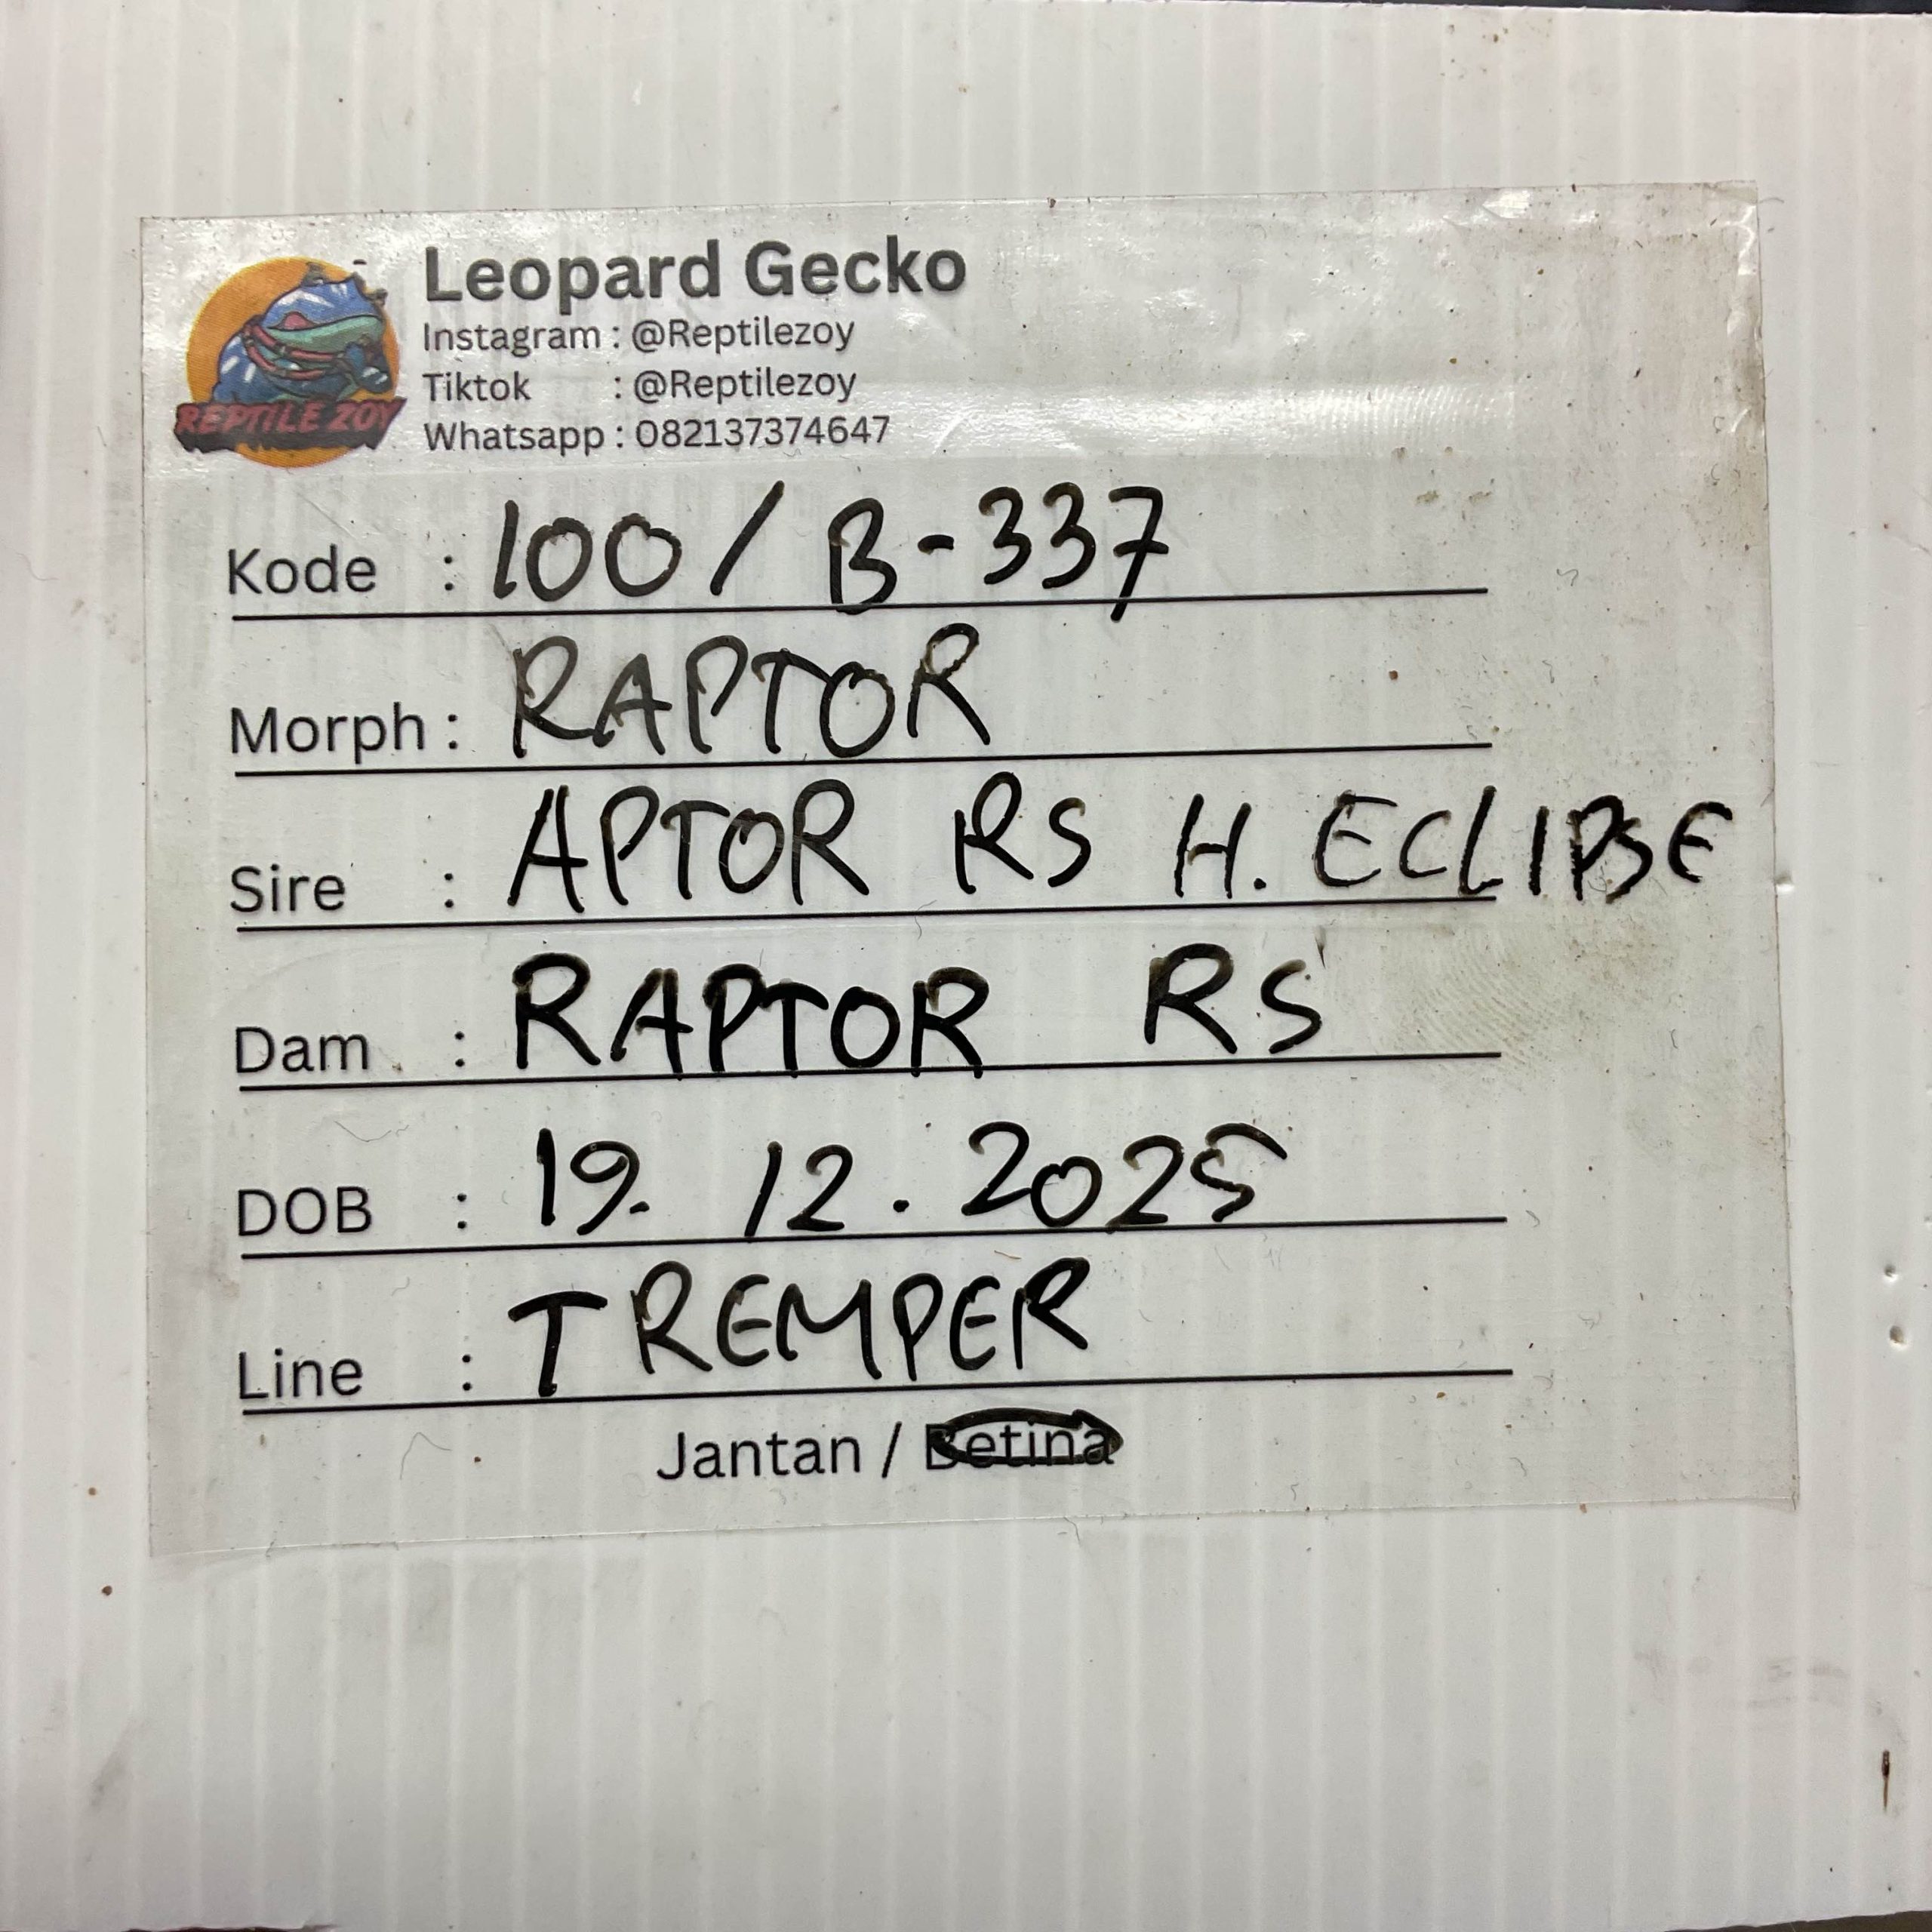 REPTILE ZOY
Leopard Gecko
Instagram : @Reptilezoy
Tiktok : @Reptilezoy
Whatsapp : 082137374647
Kode : 100 / B-337
Morph : RAPTOR
Sire : APTOR RS H. ECLIPSE
Dam : RAPTOR RS
DOB : 19. 12. 2025
Line : TREMPER
Jantan / Betina